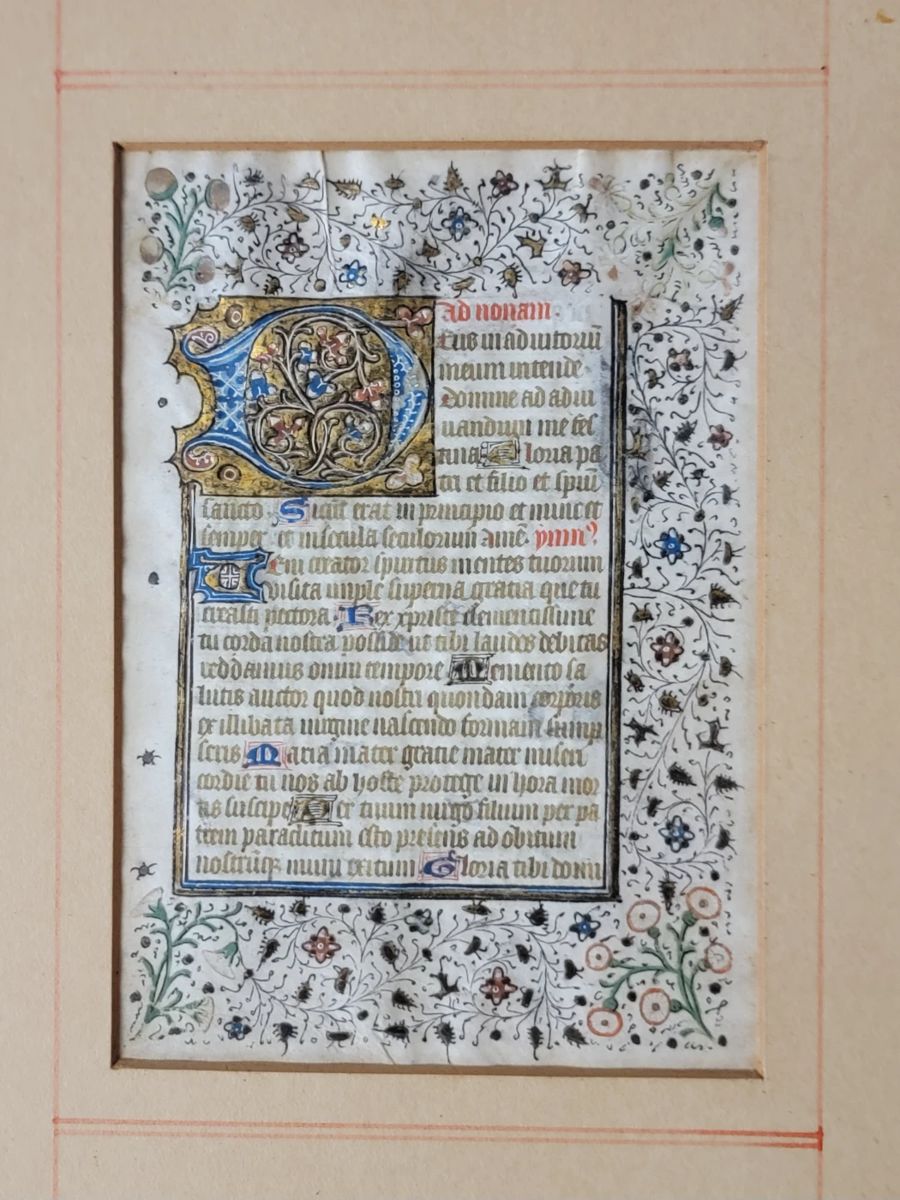 Ad nonam.
Deus in adiutoriũ
meum intende.
Domine ad adiu
uandum me fes
tina Gloria pa
tri et filio et spiũ
sancto. Sicut erat in principio et nunc et
semper et in secula seculorum amẽ. ymnꝰ
Ueni creator spiritus mentes tuorum
visita imple superna gratia que tu
creasti pectora. Rex xpriste clementissime
tu corda nostra posside ut tibi laudes debitas
reddamus omni tempore Memento sa
lutis auctor quod nostri quondam corporis
ex illibata uirgine nascendo formam sump
seris Maria mater gratie mater miseri
cordie tu nos ab hoste protege in hora mor
tis suscipe Per tuum uirgo filium per pa
trem paraclitum esto presens ad obitum
nostrũqꝫ muni exitum Gloria tibi domi